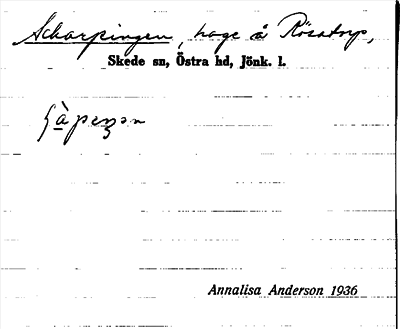 Scharpingen, hage å Rösatorp,
Skede sn, Östra hd, Jönk. l.
Annalisa Anderson 1936